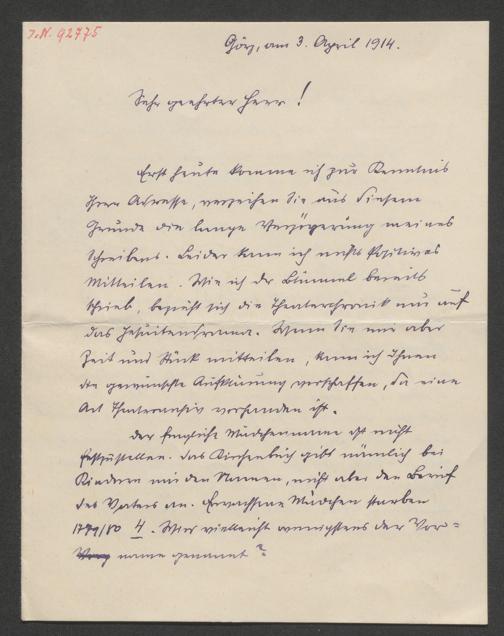 J.N. 92775
Görz, am 3. April 1914.
Sehr geehrter Herr!
Erst heute komme ich zur Kenntnis
Ihrer Adresse, verzeihen Sie aus diesem
Grunde die lange Verzögerung meines
Schreibens. Leider kann ich nichts Positives
Mitteilen. Wie ich Dr Bümml bereits
schrieb, bezieht sich die Theaterchronik nur auf
das Jesuitendrama. Wenn Sie mir aber
Zeit und Stück mitteilen, kann ich Ihnen
die gewünschte Aufklärung verschaffen, da eine
Art Theaterarchiv vorhanden ist.
Der fragliche Mädchenname ist nicht
festzustellen. Das Kirchenbuch gibt nämlich bei
Kindern nur den Namen, nicht aber den Beruf
des Vaters an. Erwachsene Mädchen starben
1779/80 4. War vielleicht wenigstens der Vor=
name genannt?